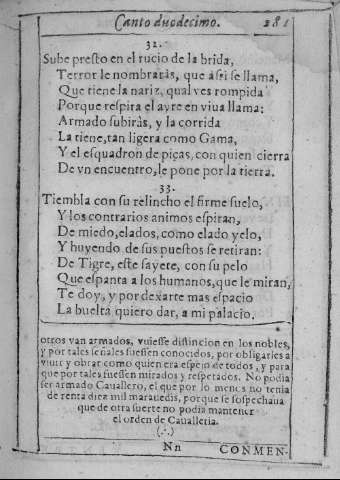 Canto duodecimo. 281
32.
Sube presto en el rucio de la brida,
Terror le nombraràs, que assi se llama,
Que tiene la nariz, qual ves rompida
Porque respira el ayre en viua llama:
Armado subiràs, y la corrida
La tiene, tan ligera como Gama,
Y el esquadron de picas, con quien cierra
De vn encuentro, le pone por la tierra.
33.
Tiembla con su relincho el firme suelo,
Y los contrarios animos espiran,
De miedo, elados, como elado yelo,
Y huyendo de sus puestos se retiran:
De Tigre, este sayete, con su pelo
Que espanta a los humanos, que le miran,
Te doy, y por dexarte mas espacio
La buelta quiero dar, a mi palacio.
otros van armados, vuiesse distincion en los nobles,
y por tales señales fuessen conocidos, por obligarles a
viuir y obrar como quien era espejo de todos, y para
que por tales fuessen mirados y respetados. No podia
ser armado Cauallero, el que por lo menos no tenia
de renta diez mil marauedis, porque se sospechaua
que de otra suerte no podia mantener
el orden de Caualleria.
(∴)
Nn CONMEN-